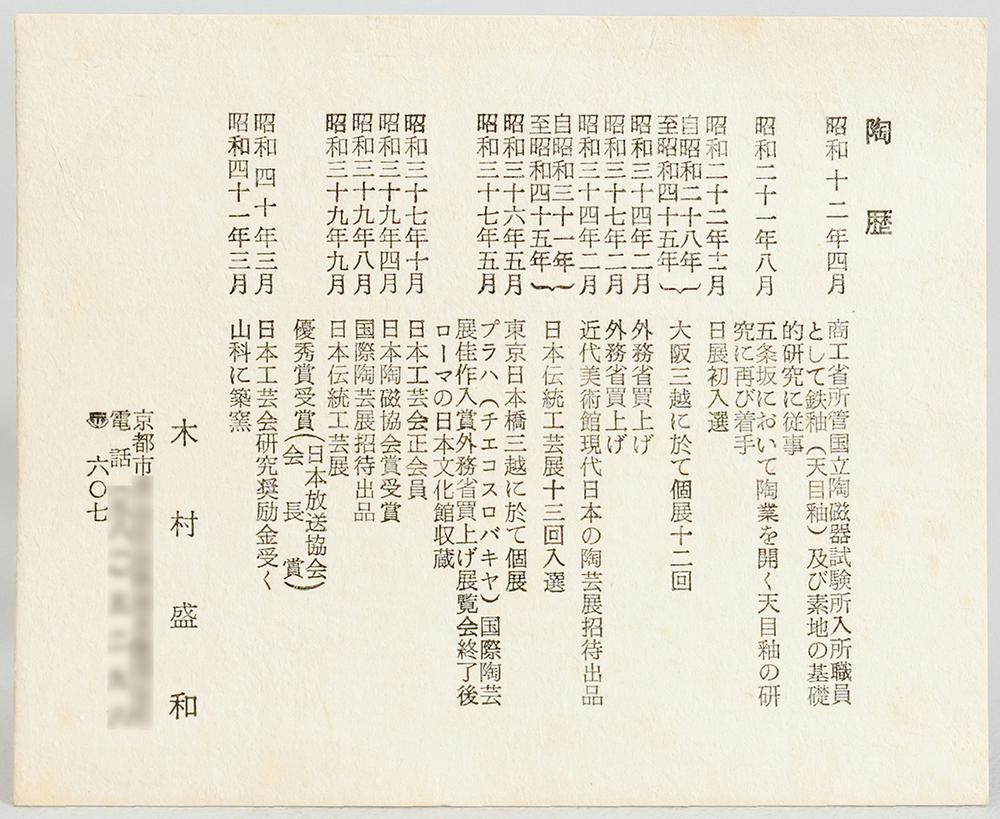 陶歴
昭和十二年四月
商工省所管国立陶磁器試験所入所職員
として鉄釉(天目釉)及び素地の基礎
的研究に従事
昭和二十一年八月
五条坂において陶業を開く天目釉の研
究に再び着手
昭和二十二年十一月
日展初入選
自昭和二十八年
至昭和四十五年
大阪三越に於て個展十二回
昭和三十四年二月
外務省買上げ
昭和三十七年二月
外務省買上げ
昭和三十四年二月
近代美術館現代日本の陶芸展招待出品
自昭和三十一年
至昭和四十五年
日本伝統工芸展十三回入選
昭和三十六年五月
東京日本橋三越に於て個展
昭和三十七年五月
プラハ(チエコスロバキヤ)国際陶芸
展佳作入賞外務省買上げ展覧会終了後
ローマの日本文化館収蔵
昭和三十七年十月
日本工芸会正会員
昭和三十九年四月
日本陶磁協会賞受賞
昭和三十九年八月
国際陶芸展招待出品
昭和三十九年九月
日本伝統工芸展
優秀賞受賞(日本放送協会)
(会長賞)
昭和四十年三月
日本工芸会研究奨励金受く
昭和四十一年三月
山科に築窯
木村盛和
京都市
電話
〒六〇七